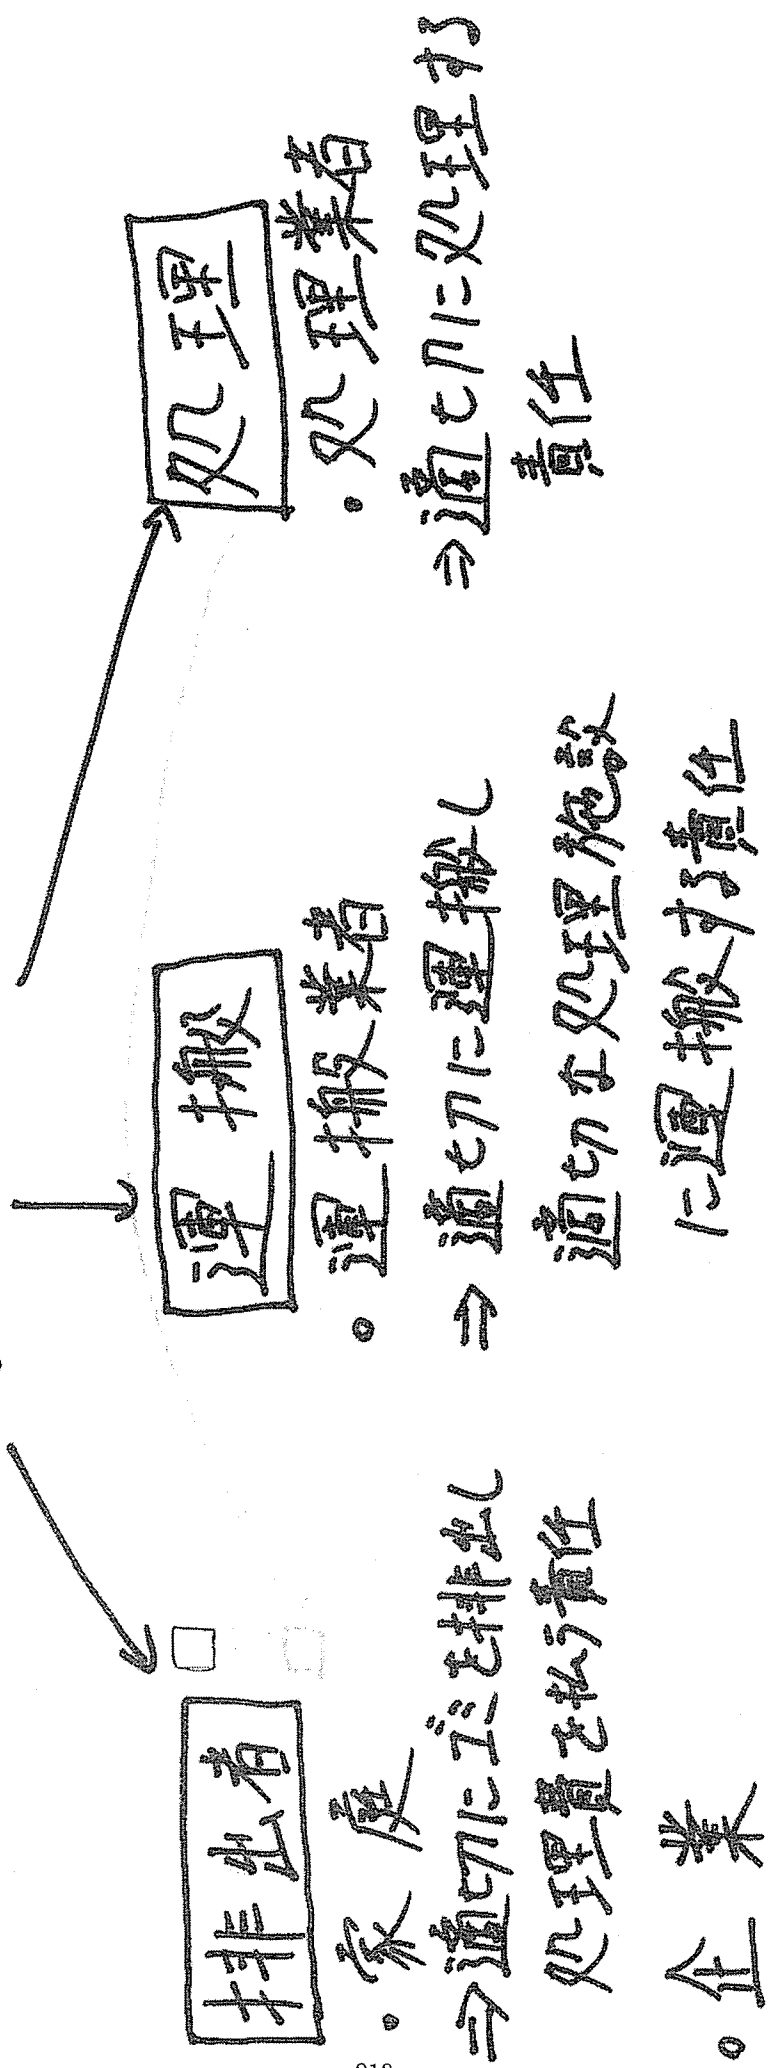 排出者
・家庭
⇒適切にゴミを排出し
処理費を払う責任
・企業
運搬
・運搬業者
⇒適切に運搬し
適切な処理施設
に運搬する責任
処理
・処理業者
⇒適切に処理する
責任